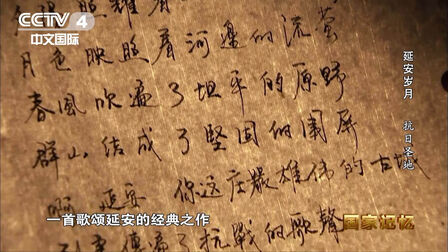 CCTV 4
中文国际
月色映照着河邊的流螢
春風吹遍了坦平的原野
群山結成了堅固的圍屏
啊 延安 你这庄嚴雄偉的古城
到處傳遍了抗戰的歌聲
延安岁月 抗日圣地
一首歌颂延安的经典之作
国家记忆